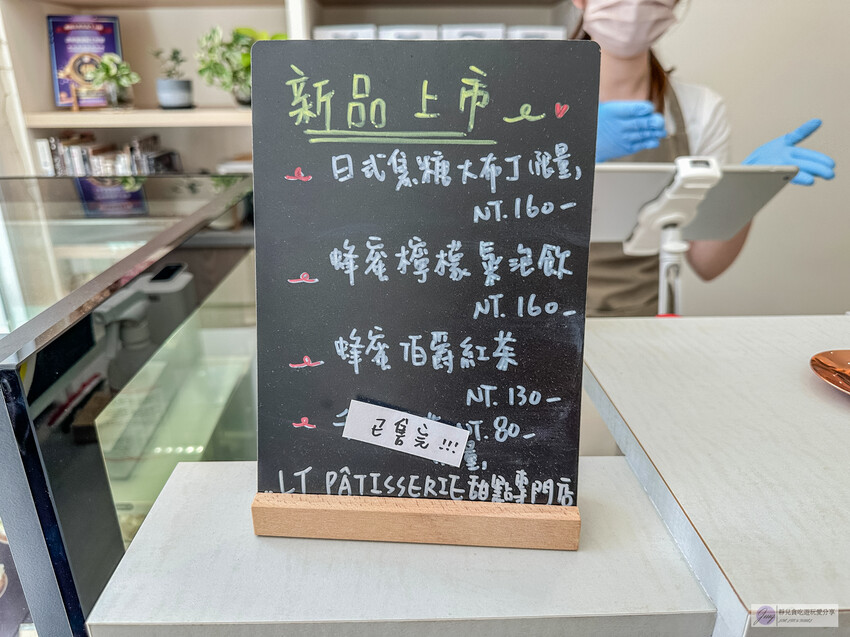 新品上市
日式焦糖大布丁(限量)
NT.160-
蜂蜜檸檬氣泡飲
NT.160-
蜂蜜伯爵紅茶
NT.130-
已售完!!!
NT.80-
量)
LT PÂTISSERIE甜點專門店
靜兒貪吃遊玩愛分享